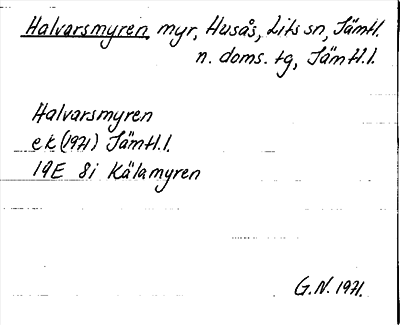 Halvarsmyren, myr, Husås, Lits sn, Jämtl.
n. doms. tg, Jämtl.l.
Halvarsmyren
ek (1971) Jämtl.l.
19E 8i Kälamyren
G.N. 1971.